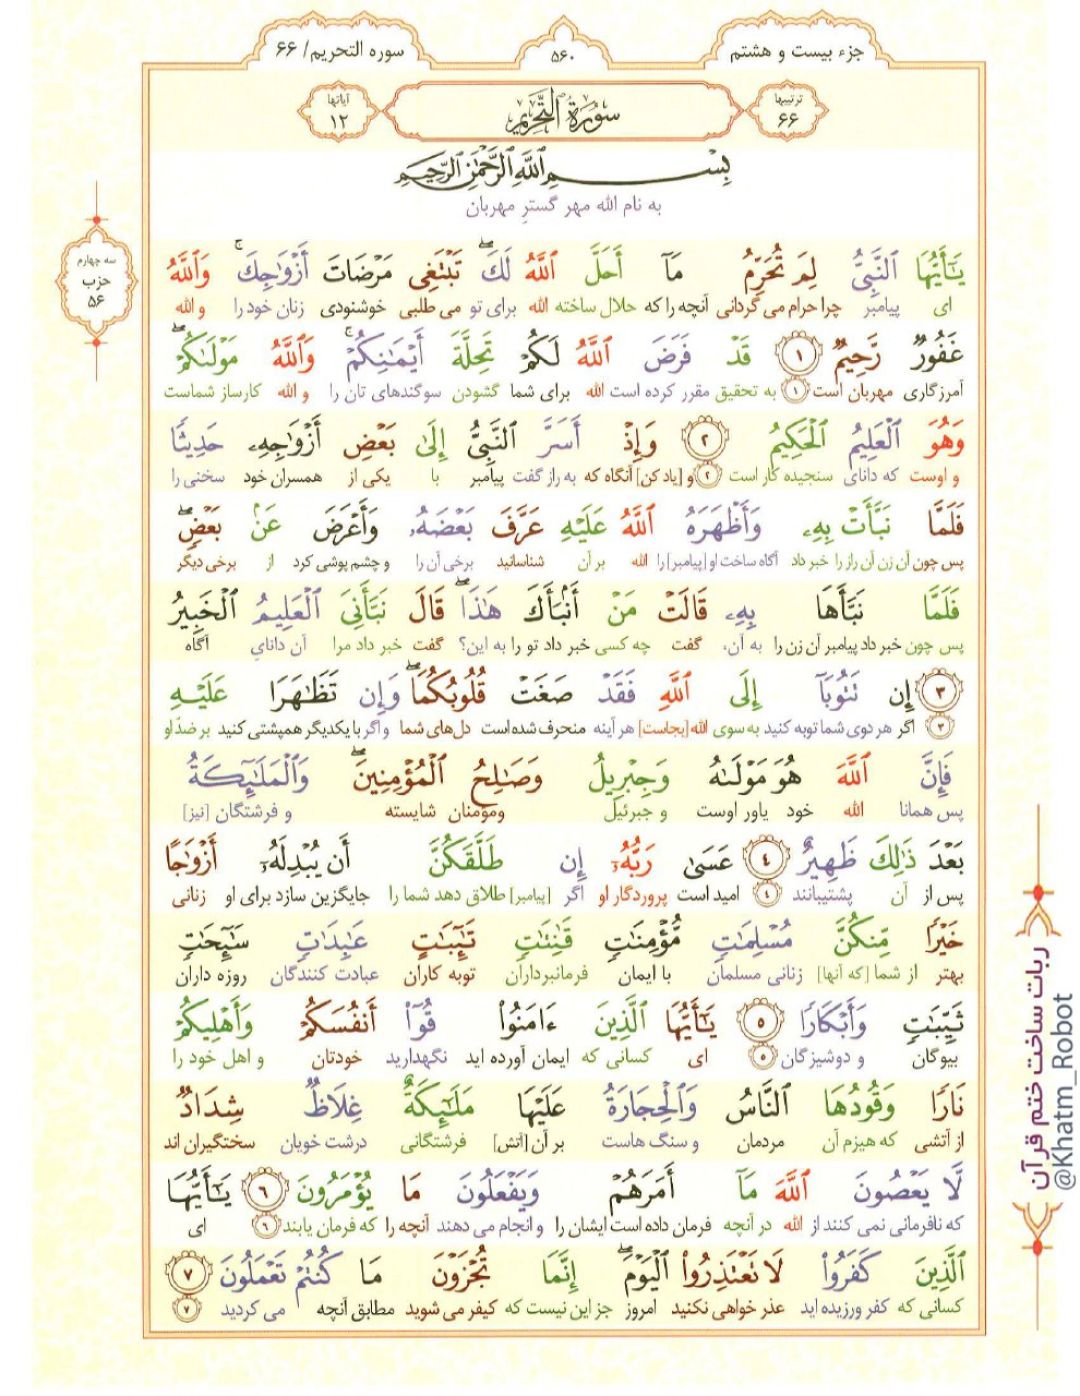 جزء بیست و هشتم
۵۶۰
سوره التحریم/ ۶۶
ترتیبها
۶۶
سُورَةُ التَّحْرِيمِ
آیاتها
۱۲
بِسْمِ ٱللَّهِ ٱلرَّحْمَٰنِ ٱلرَّحِيمِ
به نام الله مهر گسترِ مهربان
سه چهارم
حزب
۵۶
يَٰٓأَيُّهَا ٱلنَّبِىُّ لِمَ تُحَرِّمُ مَآ أَحَلَّ ٱللَّهُ لَكَ ۖ تَبْتَغِى مَرْضَاتَ أَزْوَٰجِكَ ۚ وَٱللَّهُ
ای پیامبر چرا حرام می گردانی آنچه را که حلال ساخته الله برای تو می طلبی خوشنودی زنان خود را و الله
غَفُورٌ رَّحِيمٌ ۱ قَدْ فَرَضَ ٱللَّهُ لَكُمْ تَحِلَّةَ أَيْمَٰنِكُمْ ۚ وَٱللَّهُ مَوْلَىٰكُمْ ۖ
آمرزگاری مهربان است ۱ به تحقیق مقرر کرده است الله برای شما گشودن سوگندهای تان را و الله کارساز شماست
وَهُوَ ٱلْعَلِيمُ ٱلْحَكِيمُ ۲ وَإِذْ أَسَرَّ ٱلنَّبِىُّ إِلَىٰ بَعْضِ أَزْوَٰجِهِۦ حَدِيثًا
و اوست که دانای سنجیده کار است ۲ و [یاد کن] آنگاه که به راز گفت پیامبر با یکی از همسران خود سخنی را
فَلَمَّا نَبَّأَتْ بِهِۦ وَأَظْهَرَهُ ٱللَّهُ عَلَيْهِ عَرَّفَ بَعْضَهُۥ وَأَعْرَضَ عَنۢ بَعْضٍ ۖ
پس چون آن زن آن راز را خبر داد آگاه ساخت او [پیامبر] را الله بر آن شناسانید برخی آن را و چشم پوشی کرد از برخی دیگر
فَلَمَّا نَبَّأَهَا بِهِۦ قَالَتْ مَنْ أَنۢبَأَكَ هَٰذَا ۖ قَالَ نَبَّأَنِىَ ٱلْعَلِيمُ ٱلْخَبِيرُ
پس چون خبر داد پیامبر آن زن را به آن، گفت چه کسی خبر داد تو را به این؟ گفت خبر داد مرا آن دانایِ آگاه
۳ إِن تَتُوبَآ إِلَى ٱللَّهِ فَقَدْ صَغَتْ قُلُوبُكُمَا ۖ وَإِن تَظَٰهَرَا عَلَيْهِ
۳ اگر هر دوی شما توبه کنید به سوی الله [بجاست] هر آینه منحرف شده است دل های شما و اگر با یکدیگر همپشتی کنید بر ضدّ او
فَإِنَّ ٱللَّهَ هُوَ مَوْلَىٰهُ وَجِبْرِيلُ وَصَٰلِحُ ٱلْمُؤْمِنِينَ ۖ وَٱلْمَلَٰٓئِكَةُ
پس همانا الله خود یاور اوست و جبرئیل ومومنان شایسته و فرشتگان [نیز]
بَعْدَ ذَٰلِكَ ظَهِيرٌ ۴ عَسَىٰ رَبُّهُۥٓ إِن طَلَّقَكُنَّ أَن يُبْدِلَهُۥٓ أَزْوَٰجًا
پس از آن پشتیبانند ۴ امید است پروردگار او اگر [پیامبر] طلاق دهد شما را جایگزین سازد برای او زنانی
خَيْرًا مِّنكُنَّ مُسْلِمَٰتٍ مُّؤْمِنَٰتٍ قَٰنِتَٰتٍ تَٰٓئِبَٰتٍ عَٰبِدَٰتٍ سَٰٓئِحَٰتٍ
بهتر از شما [که آنها] زنانی مسلمان با ایمان فرمانبرداران توبه کاران عبادت کنندگان روزه داران
ثَيِّبَٰتٍ وَأَبْكَارًا ۵ يَٰٓأَيُّهَا ٱلَّذِينَ ءَامَنُوا۟ قُوٓا۟ أَنفُسَكُمْ وَأَهْلِيكُمْ
بیوگان و دوشیزگان ۵ ای کسانی که ایمان آورده اید نگهدارید خودتان و اهل خود را
نَارًا وَقُودُهَا ٱلنَّاسُ وَٱلْحِجَارَةُ عَلَيْهَا مَلَٰٓئِكَةٌ غِلَاظٌ شِدَادٌ
از آتشی که هیزم آن مردمان و سنگ هاست بر آن [آتش] فرشتگانی درشت خویان سختگیران اند
لَّا يَعْصُونَ ٱللَّهَ مَآ أَمَرَهُمْ وَيَفْعَلُونَ مَا يُؤْمَرُونَ ۶ يَٰٓأَيُّهَا
که نافرمانی نمی کنند از الله در آنچه فرمان داده است ایشان را و انجام می دهند آنچه را که فرمان یابند ۶ ای
ٱلَّذِينَ كَفَرُوا۟ لَا تَعْتَذِرُوا۟ ٱلْيَوْمَ ۖ إِنَّمَا تُجْزَوْنَ مَا كُنتُمْ تَعْمَلُونَ ۷
کسانی که کفر ورزیده اید عذر خواهی نکنید امروز جز این نیست که کیفر می شوید مطابق آنچه می کردید ۷
ربات ساخت ختم قرآن
@Khatm_Robot